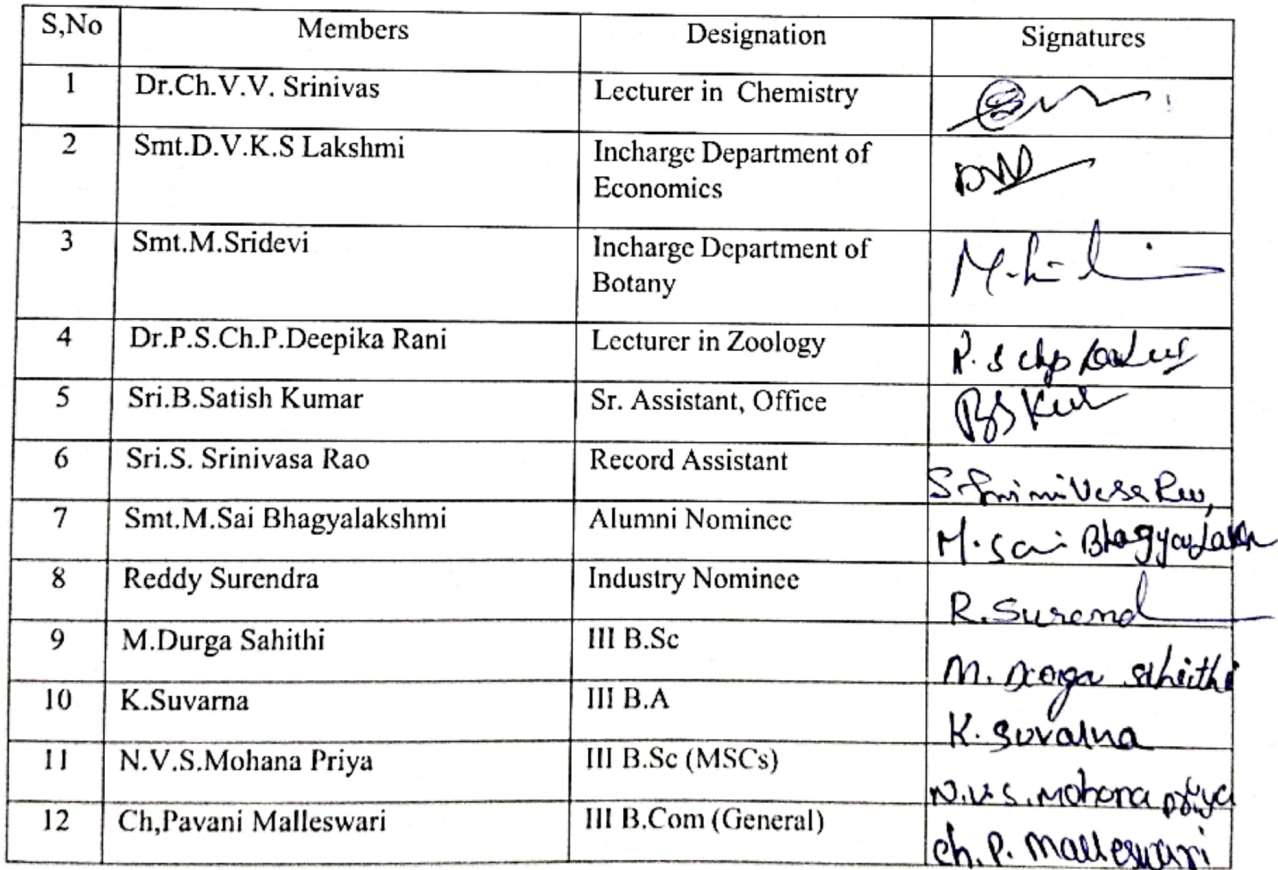 S,No Members Designation Signatures
1 Dr.Ch.V.V. Srinivas Lecturer in Chemistry
2 Smt.D.V.K.S Lakshmi Incharge Department of
Economics
3 Smt.M.Sridevi Incharge Department of
Botany
4 Dr.P.S.Ch.P.Deepika Rani Lecturer in Zoology
5 Sri.B.Satish Kumar Sr. Assistant, Office
6 Sri.S. Srinivasa Rao Record Assistant
7 Smt.M.Sai Bhagyalakshmi Alumni Nominee M.Sai
8 Reddy Surendra Industry Nominee R.Surend
9 M.Durga Sahithi III B.Sc M. Durga Sahithi
10 K.Suvarna III B.A K. Suvarna
11 N.V.S.Mohana Priya III B.Sc (MSCs) N.V.S. Mohana Priya
12 Ch,Pavani Malleswari III B.Com (General) Ch. P. Malleswari